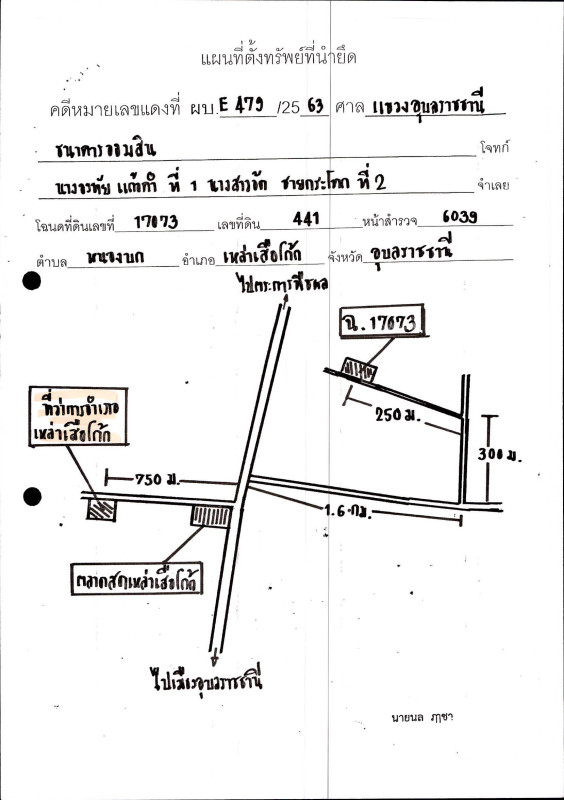 แผนที่ตั้งทรัพย์ที่นำยึด
คดีหมายเลขแดงที่ ผบ.E 479 /25 63 ศาล แขวงอุบลราชธานี
ธนาคารออมสิน โจทก์
นางอรทัย แก้วคำ ที่ 1 นางสาวรัก ชายกระโทก ที่ 2 จำเลย
โฉนดที่ดินเลขที่ 17073 เลขที่ดิน 441 หน้าสำรวจ 6039
ตำบล หนองบก อำเภอ เหล่าเสือโก้ก จังหวัด อุบลราชธานี
ไปตระการพืชผล
ฉ.17073
250 ม.
300 ม.
ที่ว่าการอำเภอ
เหล่าเสือโก้ก
750 ม.
1.6 กม.
ตลาดสดเหล่าเสือโก้ก
ไปเมืองอุบลราชธานี
นายนล ภูชา